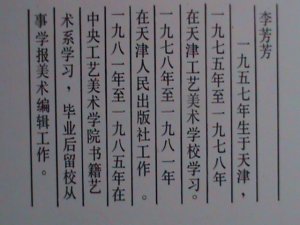 李芳芳
一九五七年生于天津，
一九七五年至一九七八年
在天津工艺美术学校学习。
一九七八年至一九八一年
在天津人民出版社工作。
一九八一年至一九八五年在
中央工艺美术学院书籍艺
术系学习，毕业后留校从
事学报美术编辑工作。